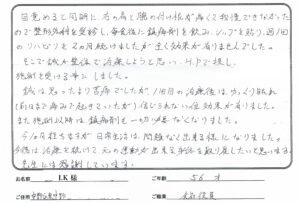 目覚めると同時に右の肩と腕の付け根が痛くて我慢できなかった
ので整形外科を受診し、毎食後に鎮痛剤を飲み、シップを貼り、週1回
のリハビリを2ヵ月続けましたが全く効果が有りませんでした。
そこで鍼か整体で治療しようと思い、H.Pで探し、
施術を受ける事にしました。
鍼は思ったより苦痛でしたが、1回目の治療後は、ゆっくり眠れ
(前はまで痛みで起きていたが)信じられない位効果が有りました。
また施術以降は鎮痛剤も一切必要なくなりました。
今1ヵ月経ちますが日常生活は問題なく出来る様になりました。
今後は治療を続けて元の運動が出来る身体を取り戻したいと思います。
先生には感謝しています。
お名前 I.K 様
ご年齢 56才
ご住所 中野区東中野
ご職業 会社役員